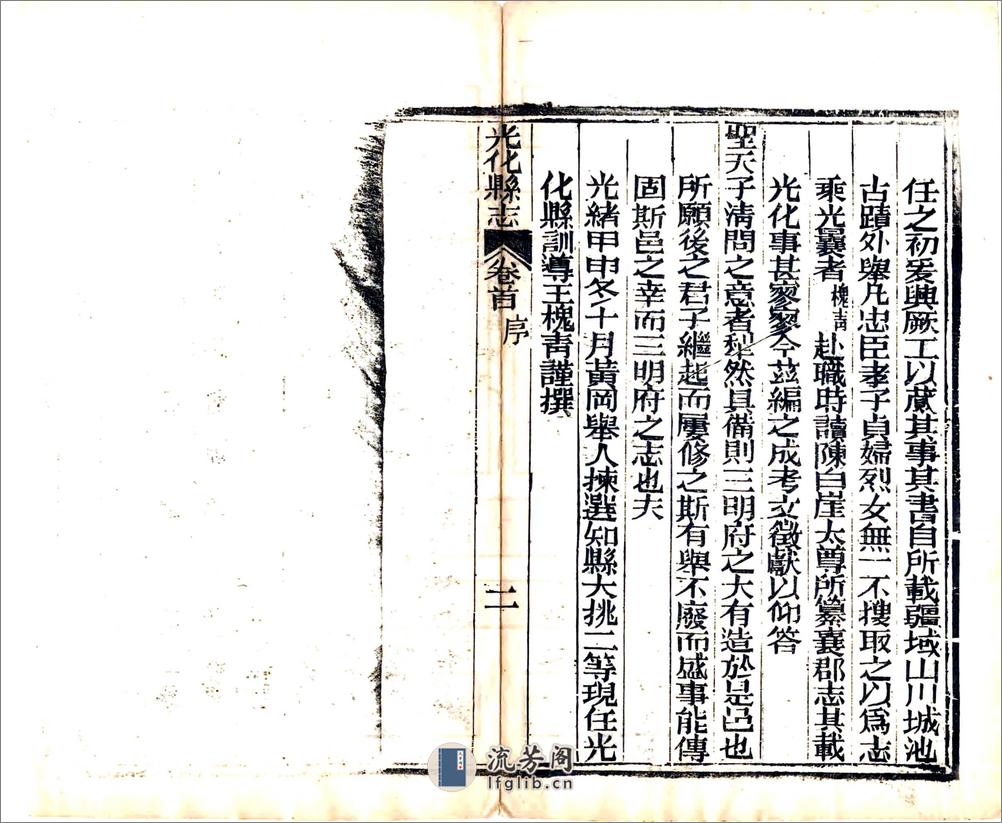 任之初爰興厥工以蕆其事其書自所載疆域山川城池
古蹟外舉凡忠臣孝子貞婦烈女無一不搜取之以爲志
乘光曩者槐青赴職時讀陳白崖太尊所纂襄郡志其載
光化事甚寥寥今茲編之成考文徵獻以仰答
聖天子清問之意者犁然具備則三明府之大有造於是邑也
所願後之君子繼起而屢修之斯有舉不廢而盛事能傳
固斯邑之幸而三明府之志也夫
光緒甲申冬十月黃岡舉人揀選知縣大挑二等現任光
化縣訓導王槐青謹撰
光化縣志 卷首 序 二
流芳閣
lfglib.cn